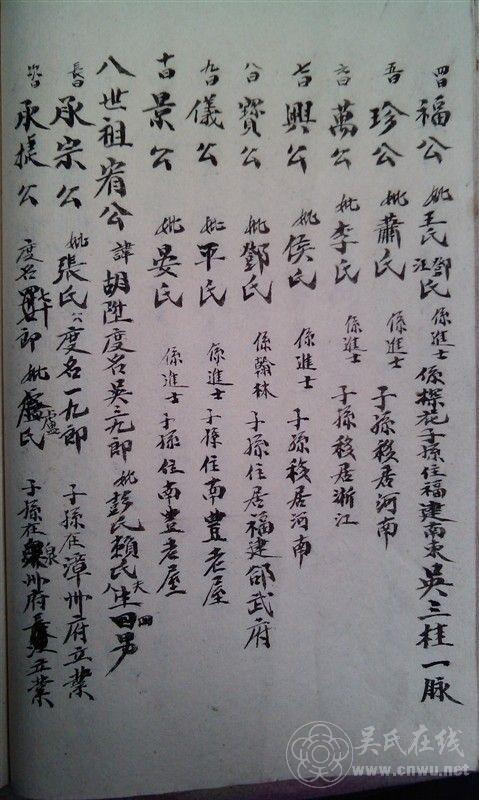 四曰福公 妣王氏鄧氏江氏 係進士係探花子孫住福建南 吳三桂一脉
五曰珍公 妣蕭氏 係進士 子孫移居河南
六曰萬公 妣李氏 係進士 子孫移居浙江
七曰興公 妣侯氏 係進士 子孫移居河南
八曰寶公 妣鄧氏 係翰林 子孫住居福建邵武府
九曰儀公 妣平氏 係進士 子孫住南豐老屋
十曰景公 妣晏氏 係進士 子孫住南豐老屋
八世祖宥公 諱胡陞度名吳三九郎 妣彭氏賴氏夫人生四男
長曰承宗公 妣張氏 公度名一九郎 子孫在漳州府立業
次曰承捷公 度名 郎 妣盧氏 子孫在泉州府 立業
吳氏在线
www.cnwu.net